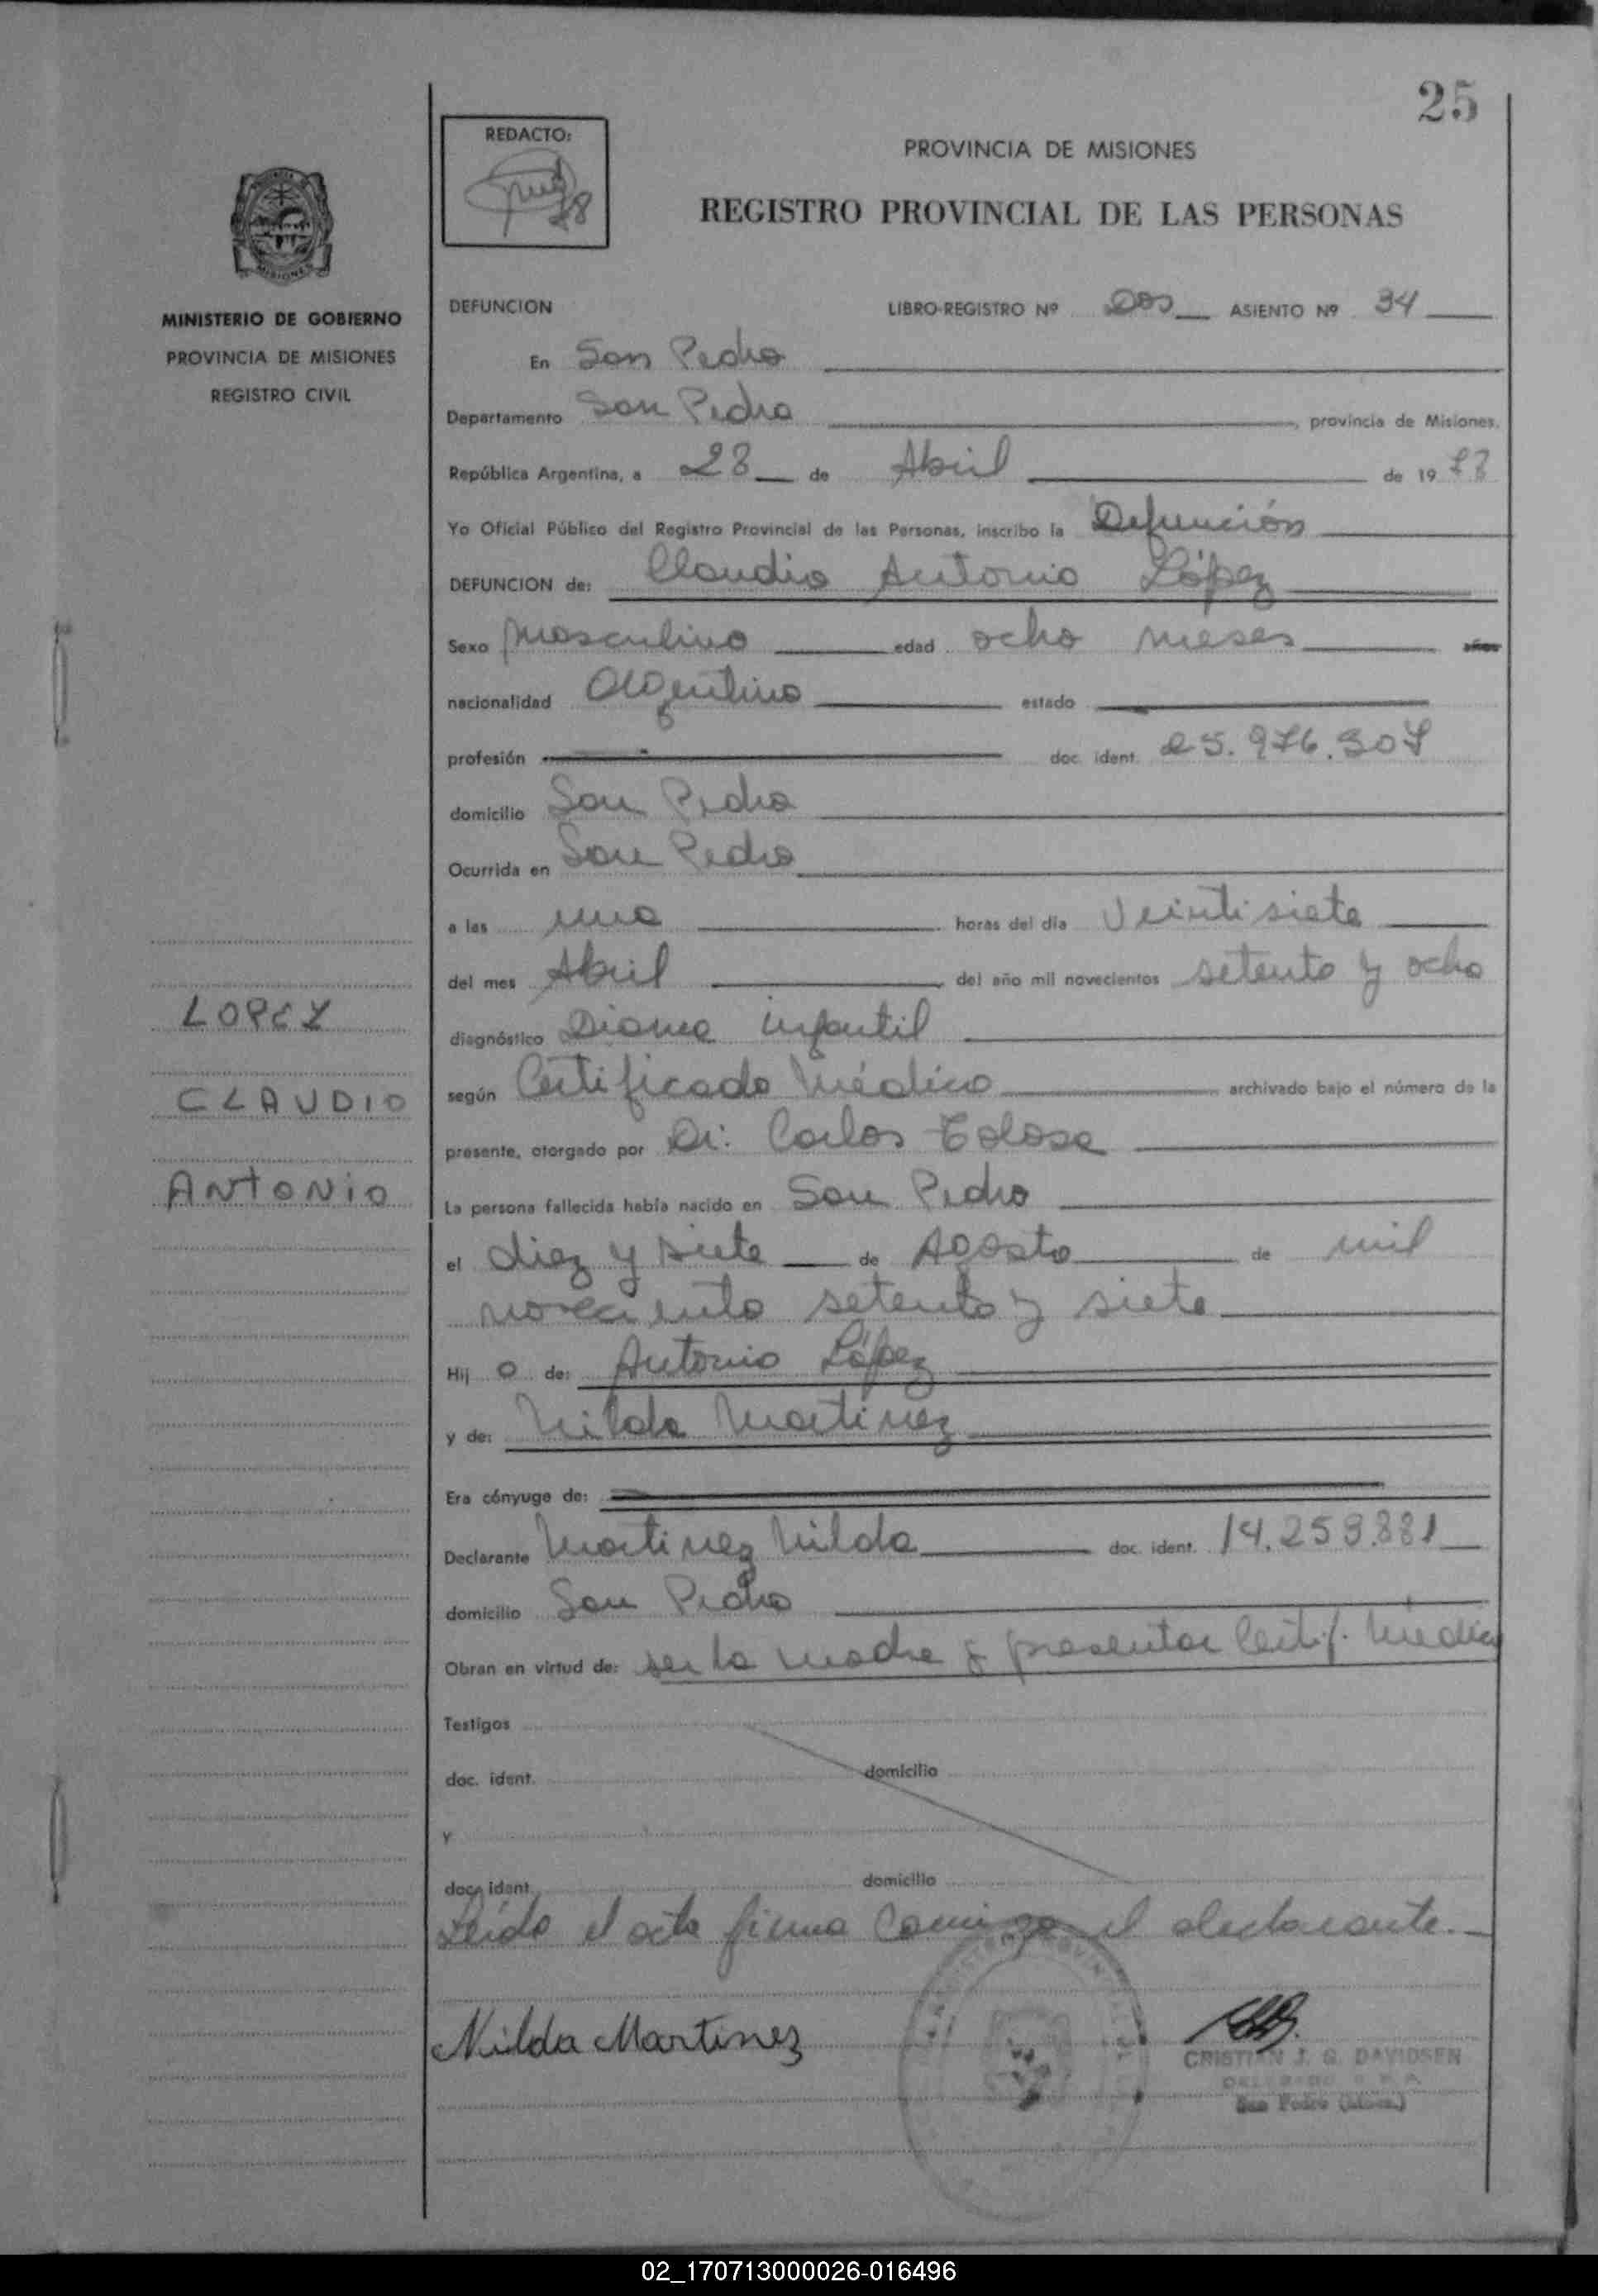 25
REDACTO:
PROVINCIA DE MISIONES
REGISTRO PROVINCIAL DE LAS PERSONAS
MISIONES
MINISTERIO DE GOBIERNO
PROVINCIA DE MISIONES
REGISTRO CIVIL
LOPEZ
CLAUDIO
ANTONIO
DEFUNCION LIBRO-REGISTRO Nº Dos ASIENTO Nº 34
En San Pedro
Departamento San Pedro, provincia de Misiones,
República Argentina, a 28 de Abril de 1978
Yo Oficial Público del Registro Provincial de las Personas, inscribo la Defunción
DEFUNCION de: Claudio Antonio López
Sexo Masculino edad ocho meses años
nacionalidad Argentino estado
profesión doc. ident. 25.976.307
domicilio San Pedro
Ocurrida en San Pedro
a las una horas del día Veintisiete
del mes Abril del año mil novecientos setenta y ocho
diagnóstico infantil
según Certificado Médico archivado bajo el número de la
presente, otorgado por Dr. Carlos Tolosa
La persona fallecida había nacido en San Pedro
el diez y siete de Agosto de mil
setenta y siete
Hij o de: Antonio López
y de: Nilda Martinez
Era cónyuge de:
Declarante Martinez Nilda doc. ident. 14.259.881
domicilio San Pedro
Obran en virtud de: ser la madre y presentar Certif. Médico
Testigos
doc. ident. domicilio
y
doc. ident. domicilio
Leída el acta firma Conmigo el declarante.
Nilda Martinez
CRISTIAN J. G. DAVIDSEN
San Pedro (Mnes.)
02_170713000026-016496